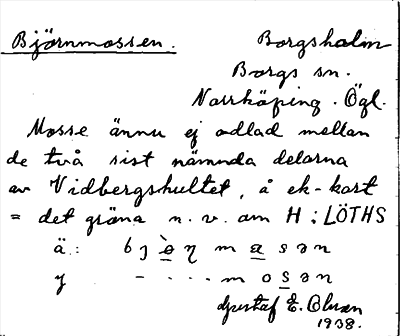 Björnmossen. Borgsholm
Borgs sn.
Norrköping. Ögl.
Mosse ännu ej odlad mellan
de två sist nämnda delarna
av Vidbergshultet, å ek-kart
= det gröna n.v. om H: LÖTHS
ä: bjò̱ŋma̱sən
y - . . . mos̱ən
Gustaf E. Olsson
1938.